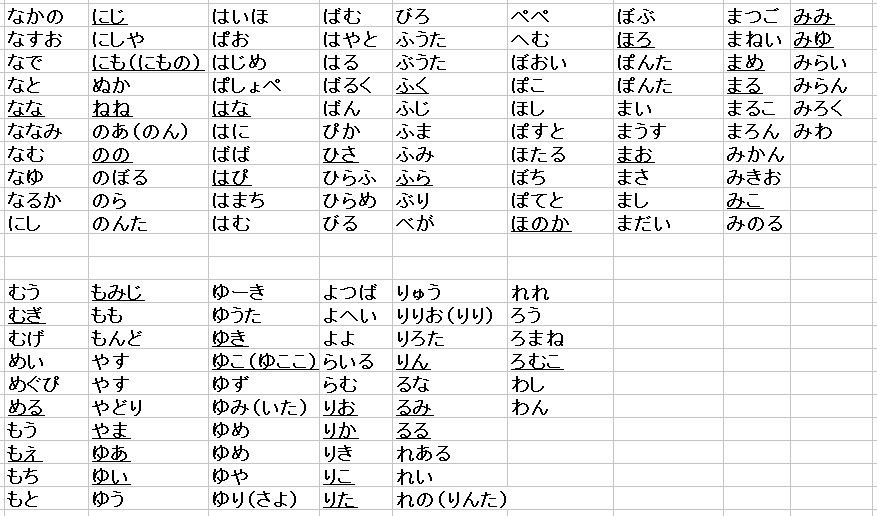 なかの にじ はいほ ばむ びろ ぺぺ ぼぶ まつご みみ
なすお にしや ぱお はやと ふうた へむ ほろ まねい みゆ
なで にも(にもの) はじめ はる ぶうた ぽおい ぽんた まめ みらい
なと ぬか ぱしょぺ ばるく ふく ぽこ ぽんた まる みらん
なな ねね はな ばん ふじ ほし まい まるこ みろく
ななみ のあ(のん) はに ぴか ふま ぽすと まうす まろん みわ
なむ のの ばば ひさ ふみ ほたる まお みかん
なゆ のぼる はぴ ひらふ ふら ぼち まさ みきお
なるか のら はまち ひらめ ぶり ぽてと まし みこ
にし のんた はむ びる べが ほのか まだい みのる
むう もみじ ゆーき よつば りゅう れれ
むぎ もも ゆうた よへい りりお(りり) ろう
むげ もんど ゆき よよ りろた ろまね
めい やす ゆこ(ゆここ) らいる りん ろむこ
めぐぴ やす ゆず らむ るな わし
める やどり ゆみ(いた) りお るみ わん
もう やま ゆめ りか るる
もえ ゆあ ゆめ りき れある
もち ゆい ゆや りこ れい
もと ゆう ゆり(さよ) りた れの(りんた)